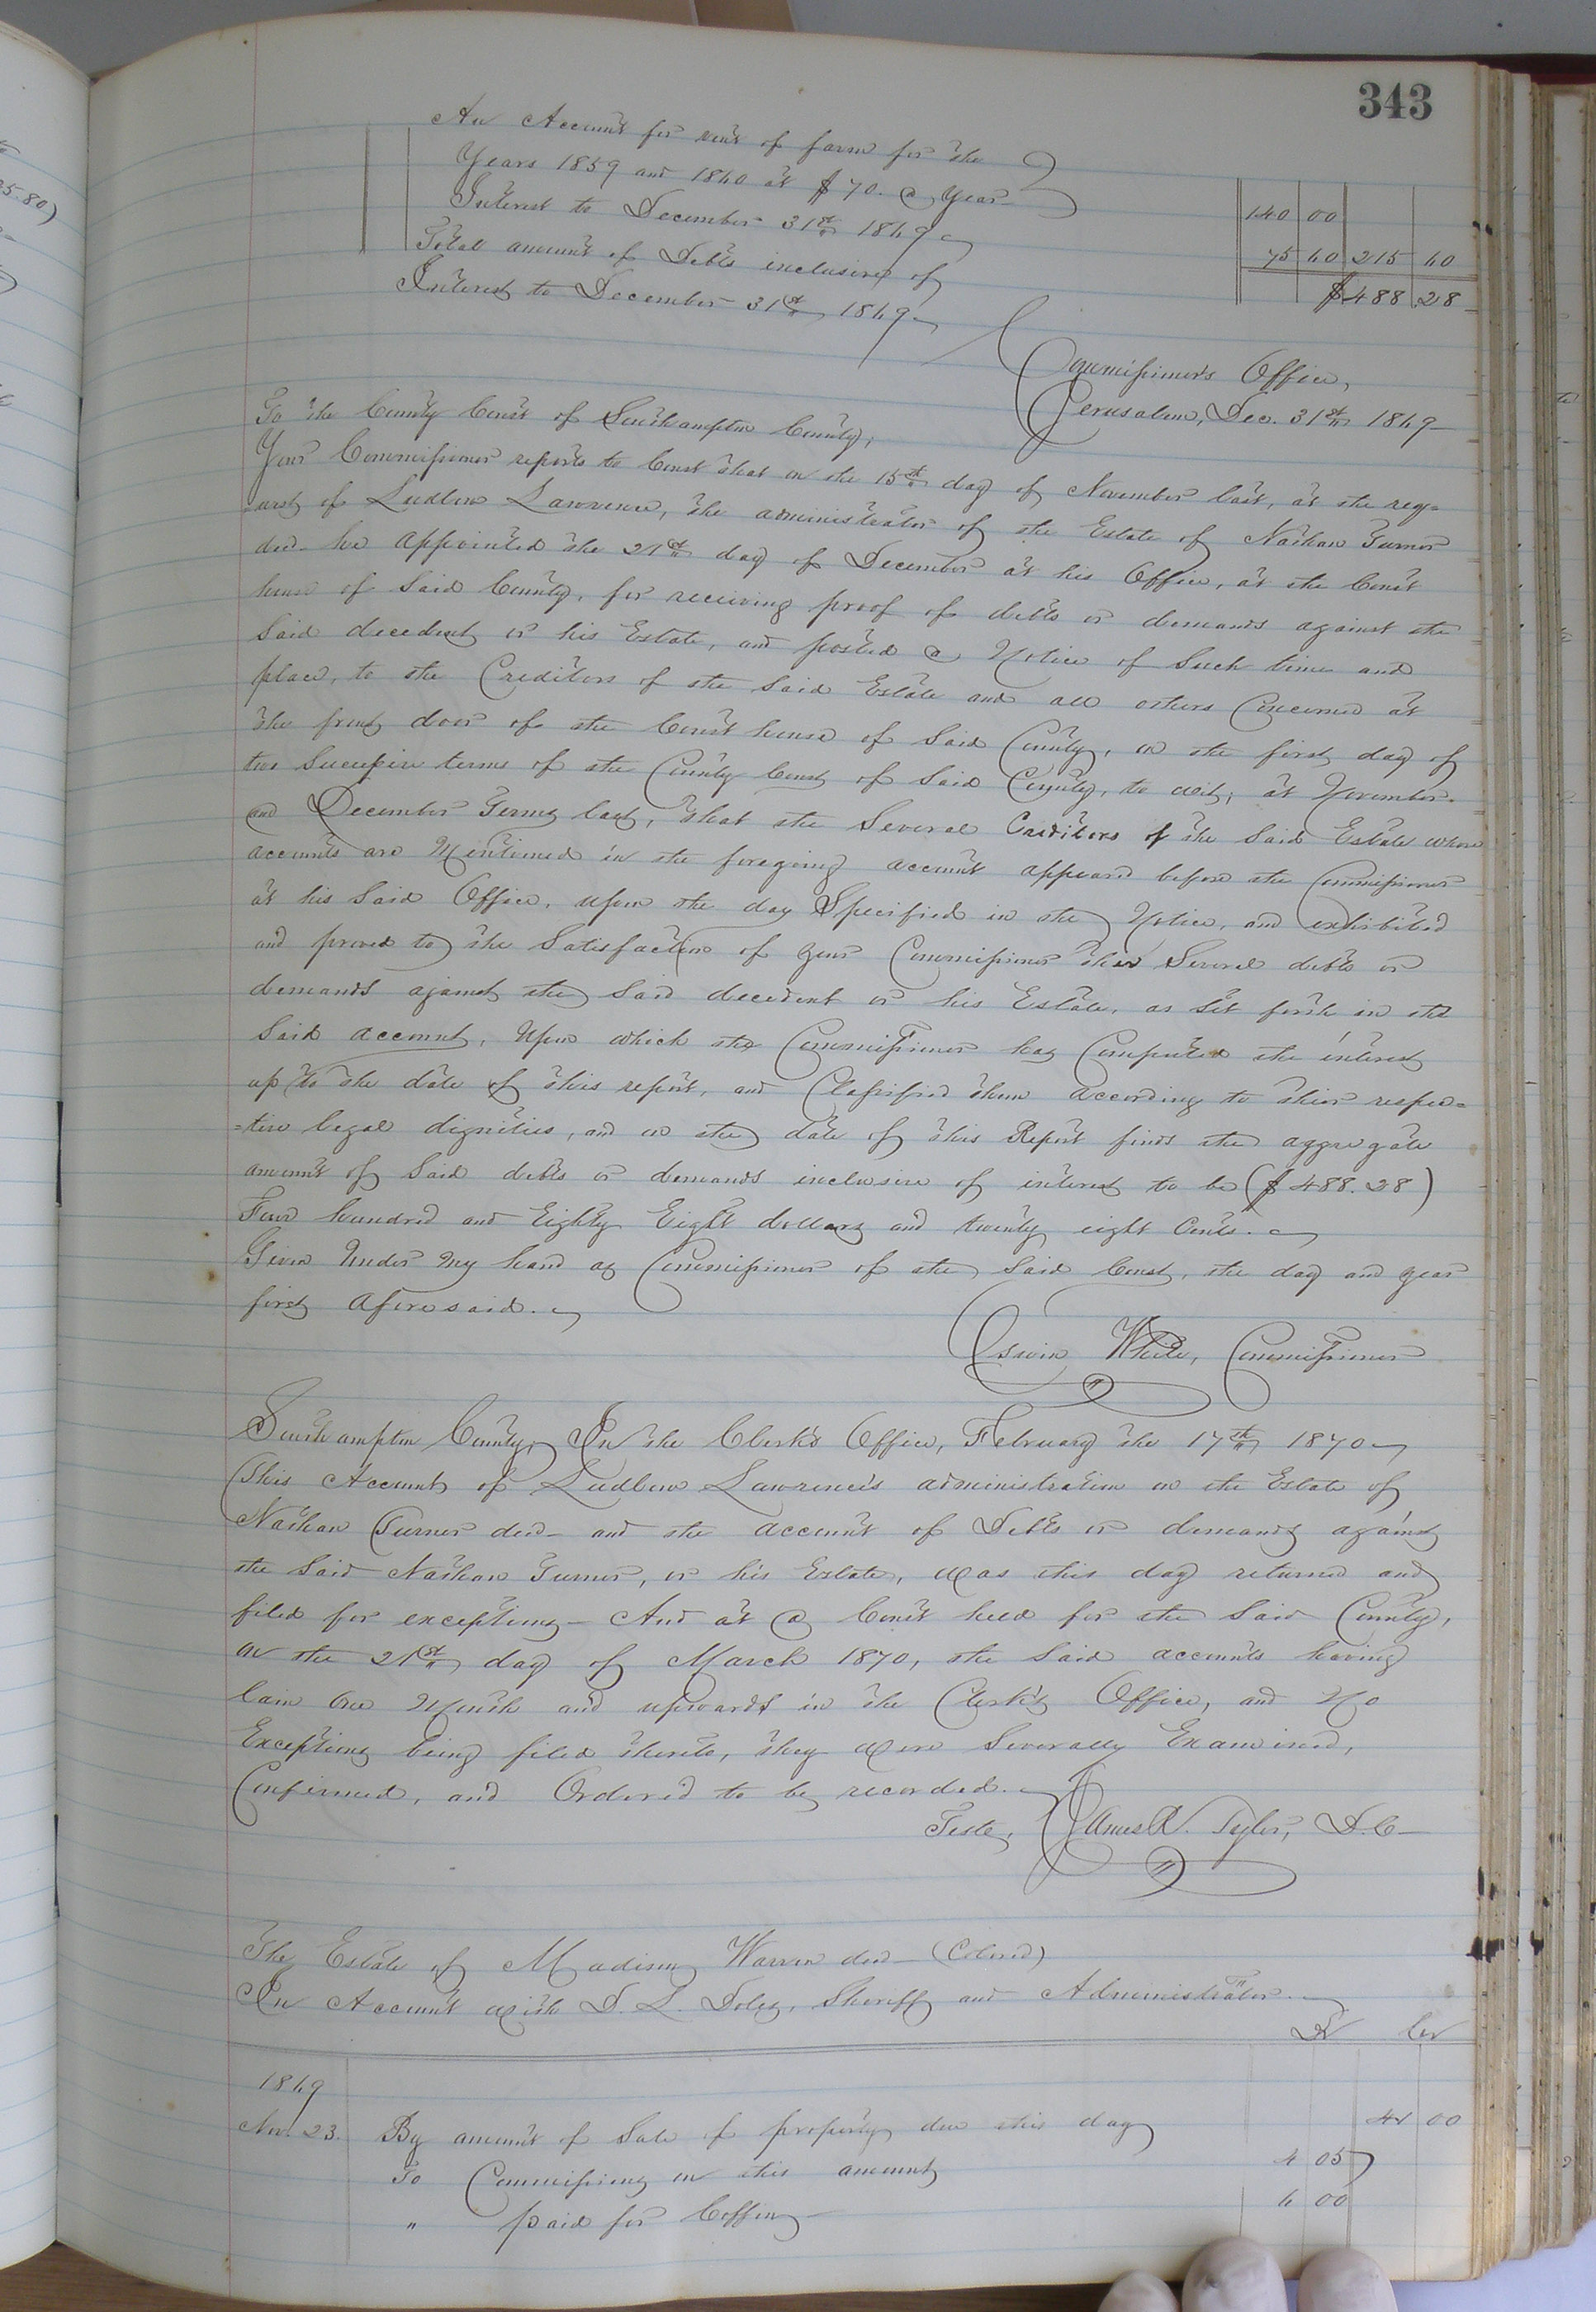 343
An Account for rent of farm for the
Years 1859 and 1860 at $70. a Year
Interest to December 31st 1869
140 00
75 60 215 60
Total amount of Debts inclusive of
Interest to December 31st 1869
$488.28
Commissioner's Office,
Jerusalem, Dec. 31st 1869
To the County Court of Southampton County,
Your Commissioner reports to Court that on the 15th day of November last, at the req=
uest of Ludlow Lawrence, the administrator of the Estate of Nathan Turner
decd. he appointed the 21st day of December at his Office, at the Court
house of Said County, for receiving proof of debts or demands against the
Said decedent or his Estate, and posted a Notice of Such time and
place, to the Creditors of the Said Estate and all others Concerned at
the front door of the Court house of Said County, on the first day of
two Successive terms of the County Court of Said County, to wit, at November
and December Terms last, that the Several Creditors of the Said Estate whose
accounts are Mentioned in the foregoing account appeared before the Commissioner
at his Said Office, upon the day Specified in the Notice, and exhibited
and proved to the Satisfaction of your Commissioner their Several debts or
demands against the Said decedent or his Estate, as Set forth in the
Said account, Upon which the Commissioner has Computed the interest
up to the date of this report, and Classified them according to their respec=
=tive legal dignities, and on the date of this Report finds the aggregate
amount of Said debts or demands inclusive of interest to be ($488.28)
Four hundred and Eighty Eight dollars and twenty eight Cents.
Given Under My hand as Commissioner of the Said Court, the day and year
first aforesaid.
White, Commissioner
Southampton County, In the Clerk's Office, February the 17th 1870
This Account of Ludlow Lawrence's administration on the Estate of
Nathan Turner decd and the account of Debts or demands against
the Said Nathan Turner, or his Estate, was this day returned and
filed for exceptions And at a Court held for the Said County,
on the 21st day of March 1870, the Said accounts having
lain One Month and upwards in the Clerk's Office, and No
Exceptions being filed thereto, they were Severally Examined,
Confirmed, and Ordered to be recorded.
Teste, James R. Tyler, D.C
The Estate of Madison Warren decd (Colored)
In Account with D. L. Sheriff and Administrator.
Dr Cr
1869
Nov. 23. By amount of Sale of property due this day 00
To Commissions on this amount 4 05
" paid for Coffin 6 00